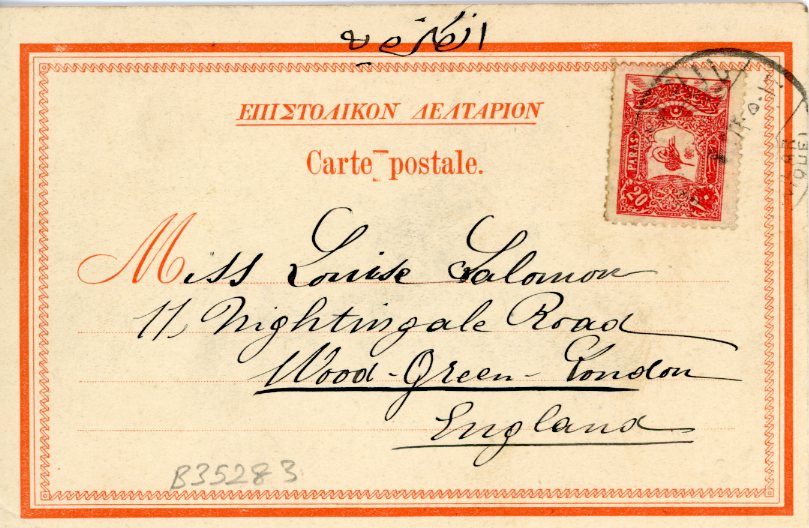 انكلتره يه
ΕΠΙΣΤΟΛΙΚΟΝ ΔΕΛΤΑΡΙΟΝ
Carte postale.
PARAS
20
Miss Louise Salomon
11, Nightingale Road
Wood-Green-London
England
B35283